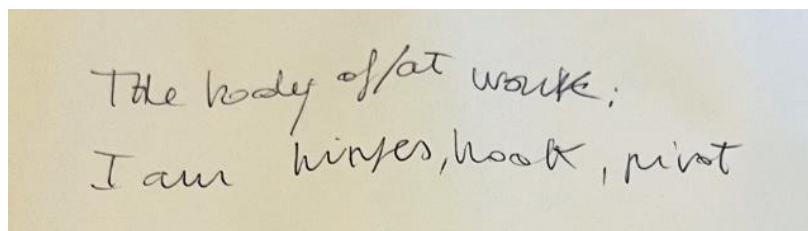 The body of/at work:
I am hinges, hook, pivot